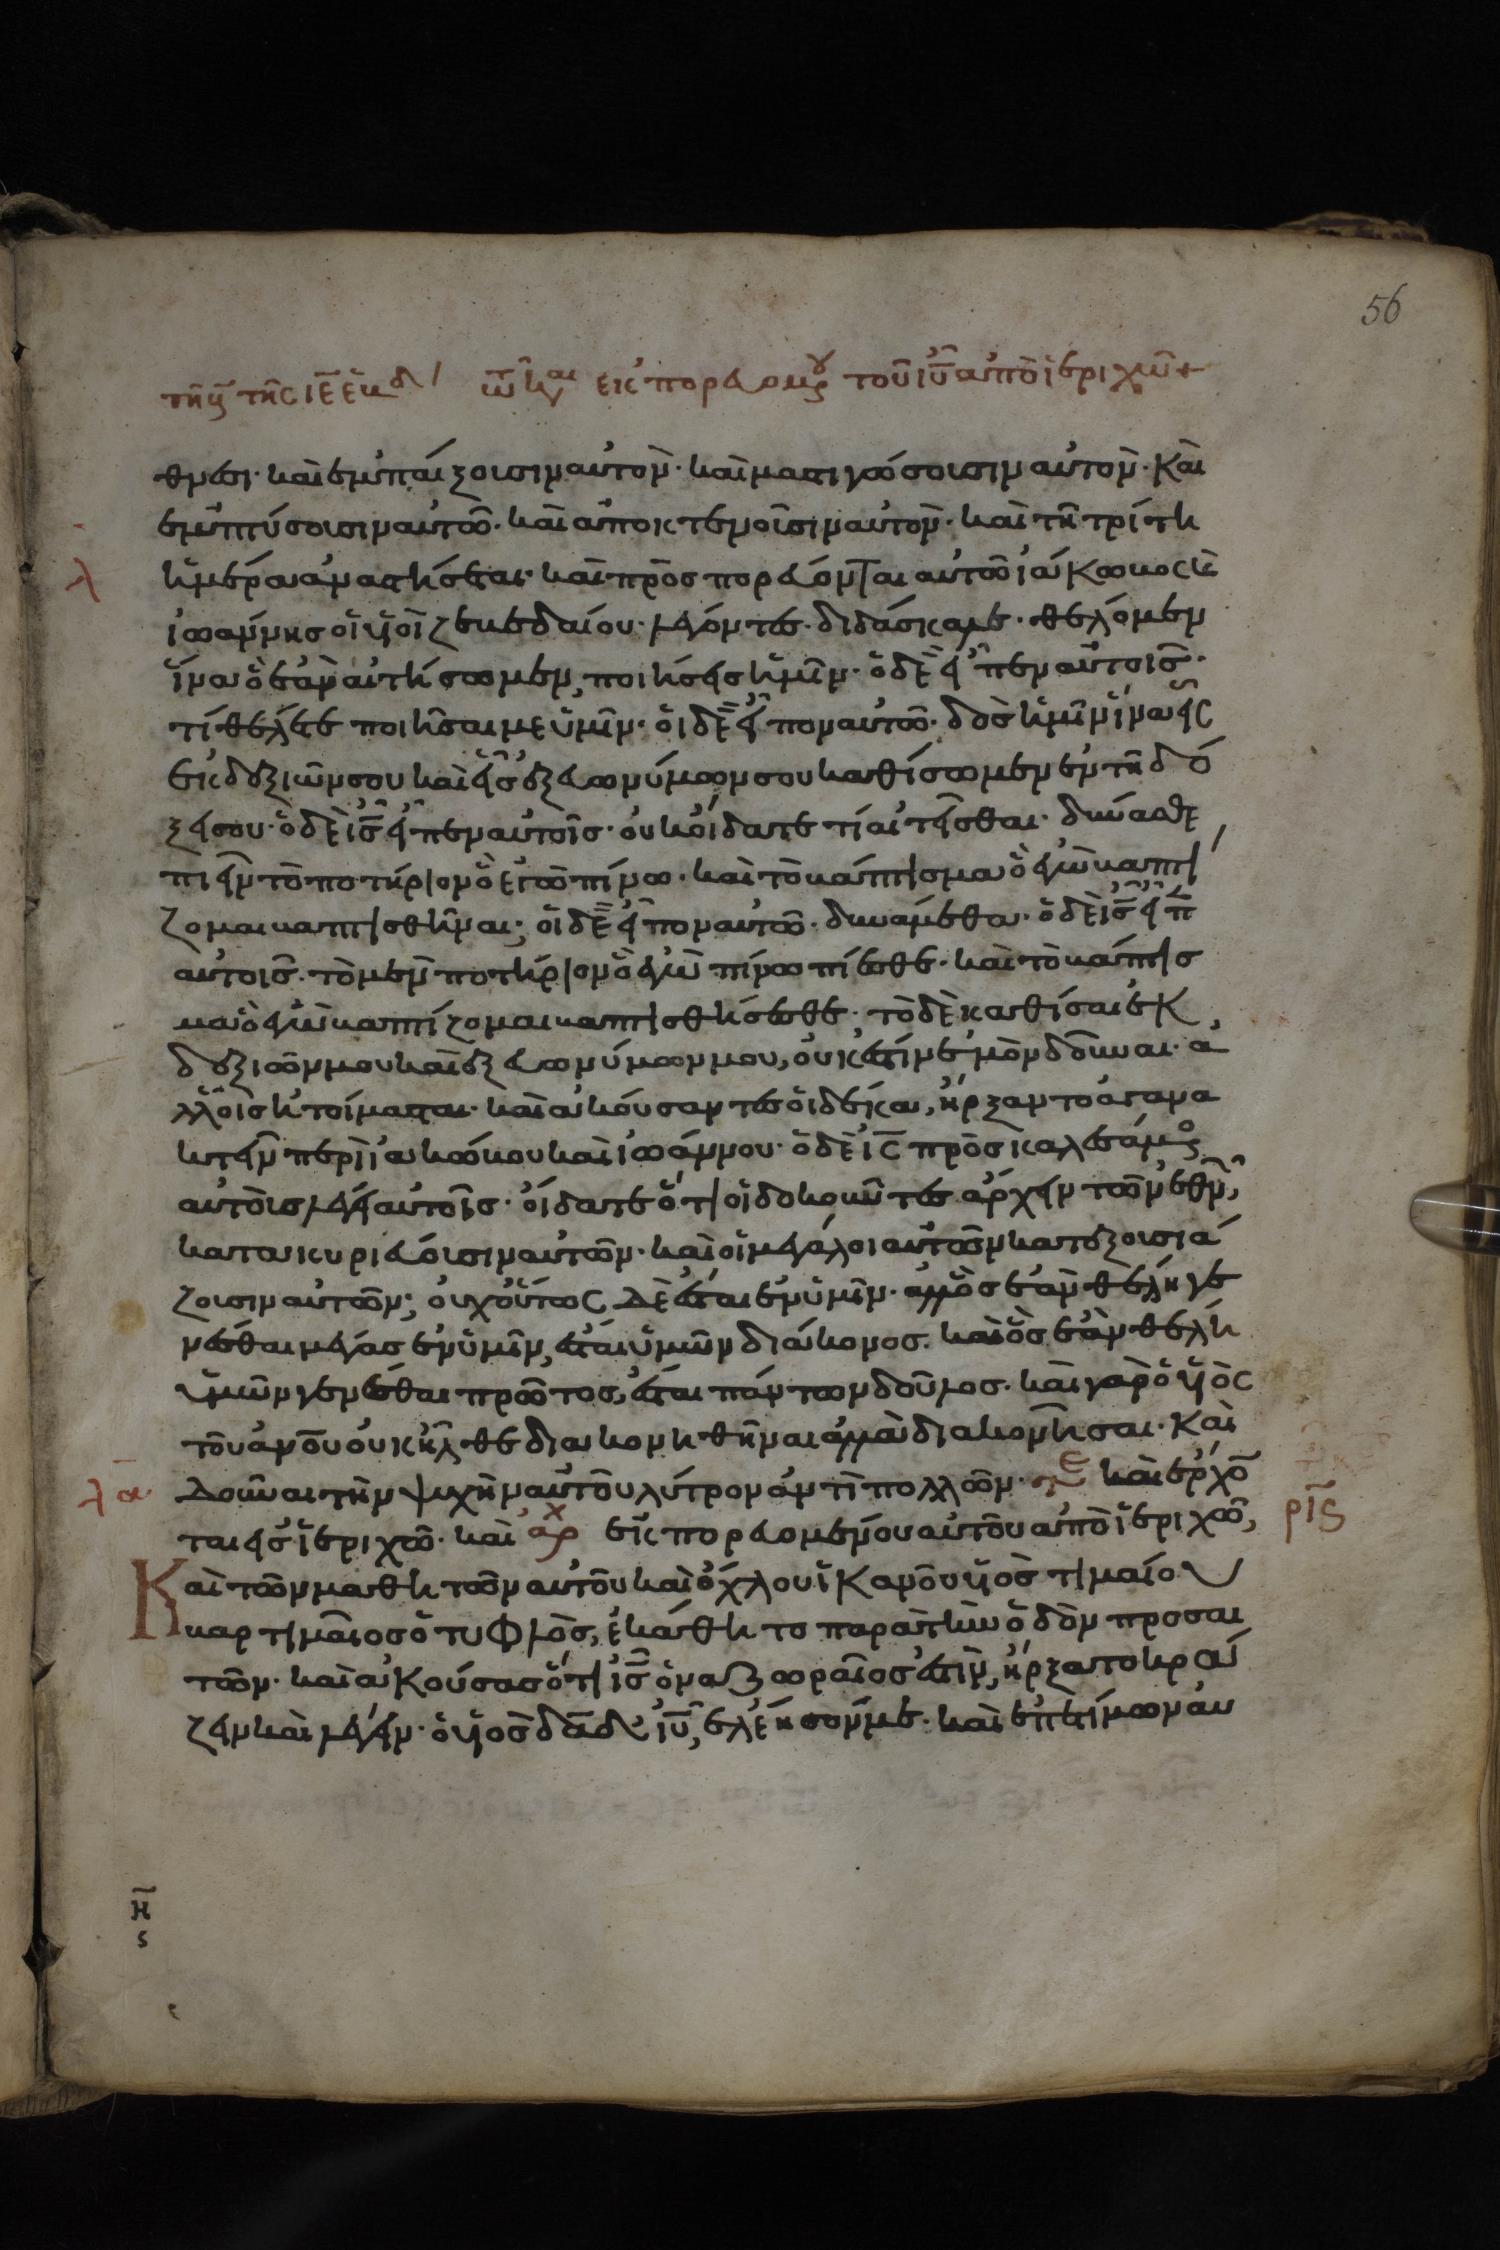 56
τῆ ϛ τῆς ιε εβδ τῶ καιρ εκπορευομου τοῦ ιυ ἀπὸ ἱεριχὼ +
θνεσι· καὶ ἐμπαίξουσιν αὐτὸν· καὶ μαστιγώσουσιν αὐτὸν· Καὶ
ἐμπτύσουσιν αὐτῶ· καὶ ἀποκτενοῦσιν αὐτὸν· καὶ τῆ τρίτη
λ
ἡμέρα ἀναστήσεται· καὶ προσπορεύονται αὐτῶ ϊάκωβος κὲ
ϊωάννης οἱ υἱοὶ ζεβεδαίου· λέγοντες· διδάσκαλε· θέλομεν
ἵνα ὃ ἐὰν αἰτήσωμεν, ποιήσεις ἡμῖν· ὁ δὲ εἶπεν αὐτοῖς·
τί θέλετε ποιῆσαι με ὑμῖν· οἱ δὲ εἶπον αὐτῶ· δὸς ἡμῖν ἵνα εἷς
ἐκ δεξιῶν σου καὶ εἷς ἐξ εὐωνύμων σου καθίσωμεν ἐν τῆ δό
ξη σου· ὁ δὲ ις εἶπεν αὐτοῖς· οὐκ οἴδατε τί αἰτεῖσθαι· δύνασθε
πιεῖν τὸ ποτήριον ὃ ἐγὼ πίνω· καὶ τὸ βάπτισμα ὃ ἐγὼ βαπτί
ζομαι βαπτισθῆναι; οἱ δὲ εἶπον αὐτῶ· δυνάμεθα· ὁ δὲ ις εἶπ
αὐτοῖς· τὸ μὲν ποτήριον ὃ ἐγὼ πίνω πίεσθε· καὶ τὸ βάπτισ
μα ὃ ἐγὼ βαπτίζομαι βαπτισθήσεσθε· τὸ δὲ καθίσαι ἐκ
δεξιῶν μου καὶ ἐξ εὐωνύμων μου, οὐκ ἔστιν ἐμὸν δοῦναι· ἀ
λλοῖς ἡτοίμασται· καὶ ἀκούσαντες οἱ δέκα, ἤρξαντο ἀγανα
κτεῖν περὶ ϊακώβου καὶ ϊωάννου· ὁ δὲ ις προσκαλεσάμενος
αὐτοὺς λέγει αὐτοῖς· οἴδατε ὅτι οἱ δοκοῦντες ἄρχειν τῶν ἐθνῶν,
κατακυριεύουσιν αὐτῶν· καὶ οἱ μεγάλοι αὐτῶν κατεξουσιά
ζουσιν αὐτῶν; οὐχ οὕτως δὲ ἔσται ἐν ὑμῖν· ἀλλ ὃς ἐὰν θέλη γε
νέσθαι μέγας ἐν ὑμῖν, ἔσται ὑμῶν διάκονος· καὶ ὃς ἐὰν θέλη
ὑμῶν γενέσθαι πρῶτος, ἔσται πάντων δοῦλος· καὶ γὰρ ὁ υἱὸς
τοῦ ανου οὐκ ἦλθε διακονηθῆναι ἀλλὰ διακονῆσαι· Καὶ
λα·
δοῦναι τὴν ψυχὴν αὐτοῦ λύτρον ἀντὶ πολλῶν· τε καὶ ἔρχο
ριϛ
ται εἰς ἱεριχῶ· καὶ αρχ ἐκπορευομένου αὐτοῦ ἀπὸ ἱεριχῶ,
Καὶ τῶν μαθητῶν αὐτοῦ καὶ ὄχλου ἱκανοῦ υἱὸς τιμαίου
βαρτιμαῖος ὁ τυφλὸς, ἐκάθητο παρὰ τὴν ὁδὸν προσαι
τῶν· καὶ ἀκούσας ὅτι ις ὁ ναζωραῖος ἐστὶν, ἤρξατο κρά
ζειν καὶ λέγειν· ὁ υἱὸς δαδ ιυ, ἐλέησόν με· καὶ ἐπετίμων αυ
η
ς